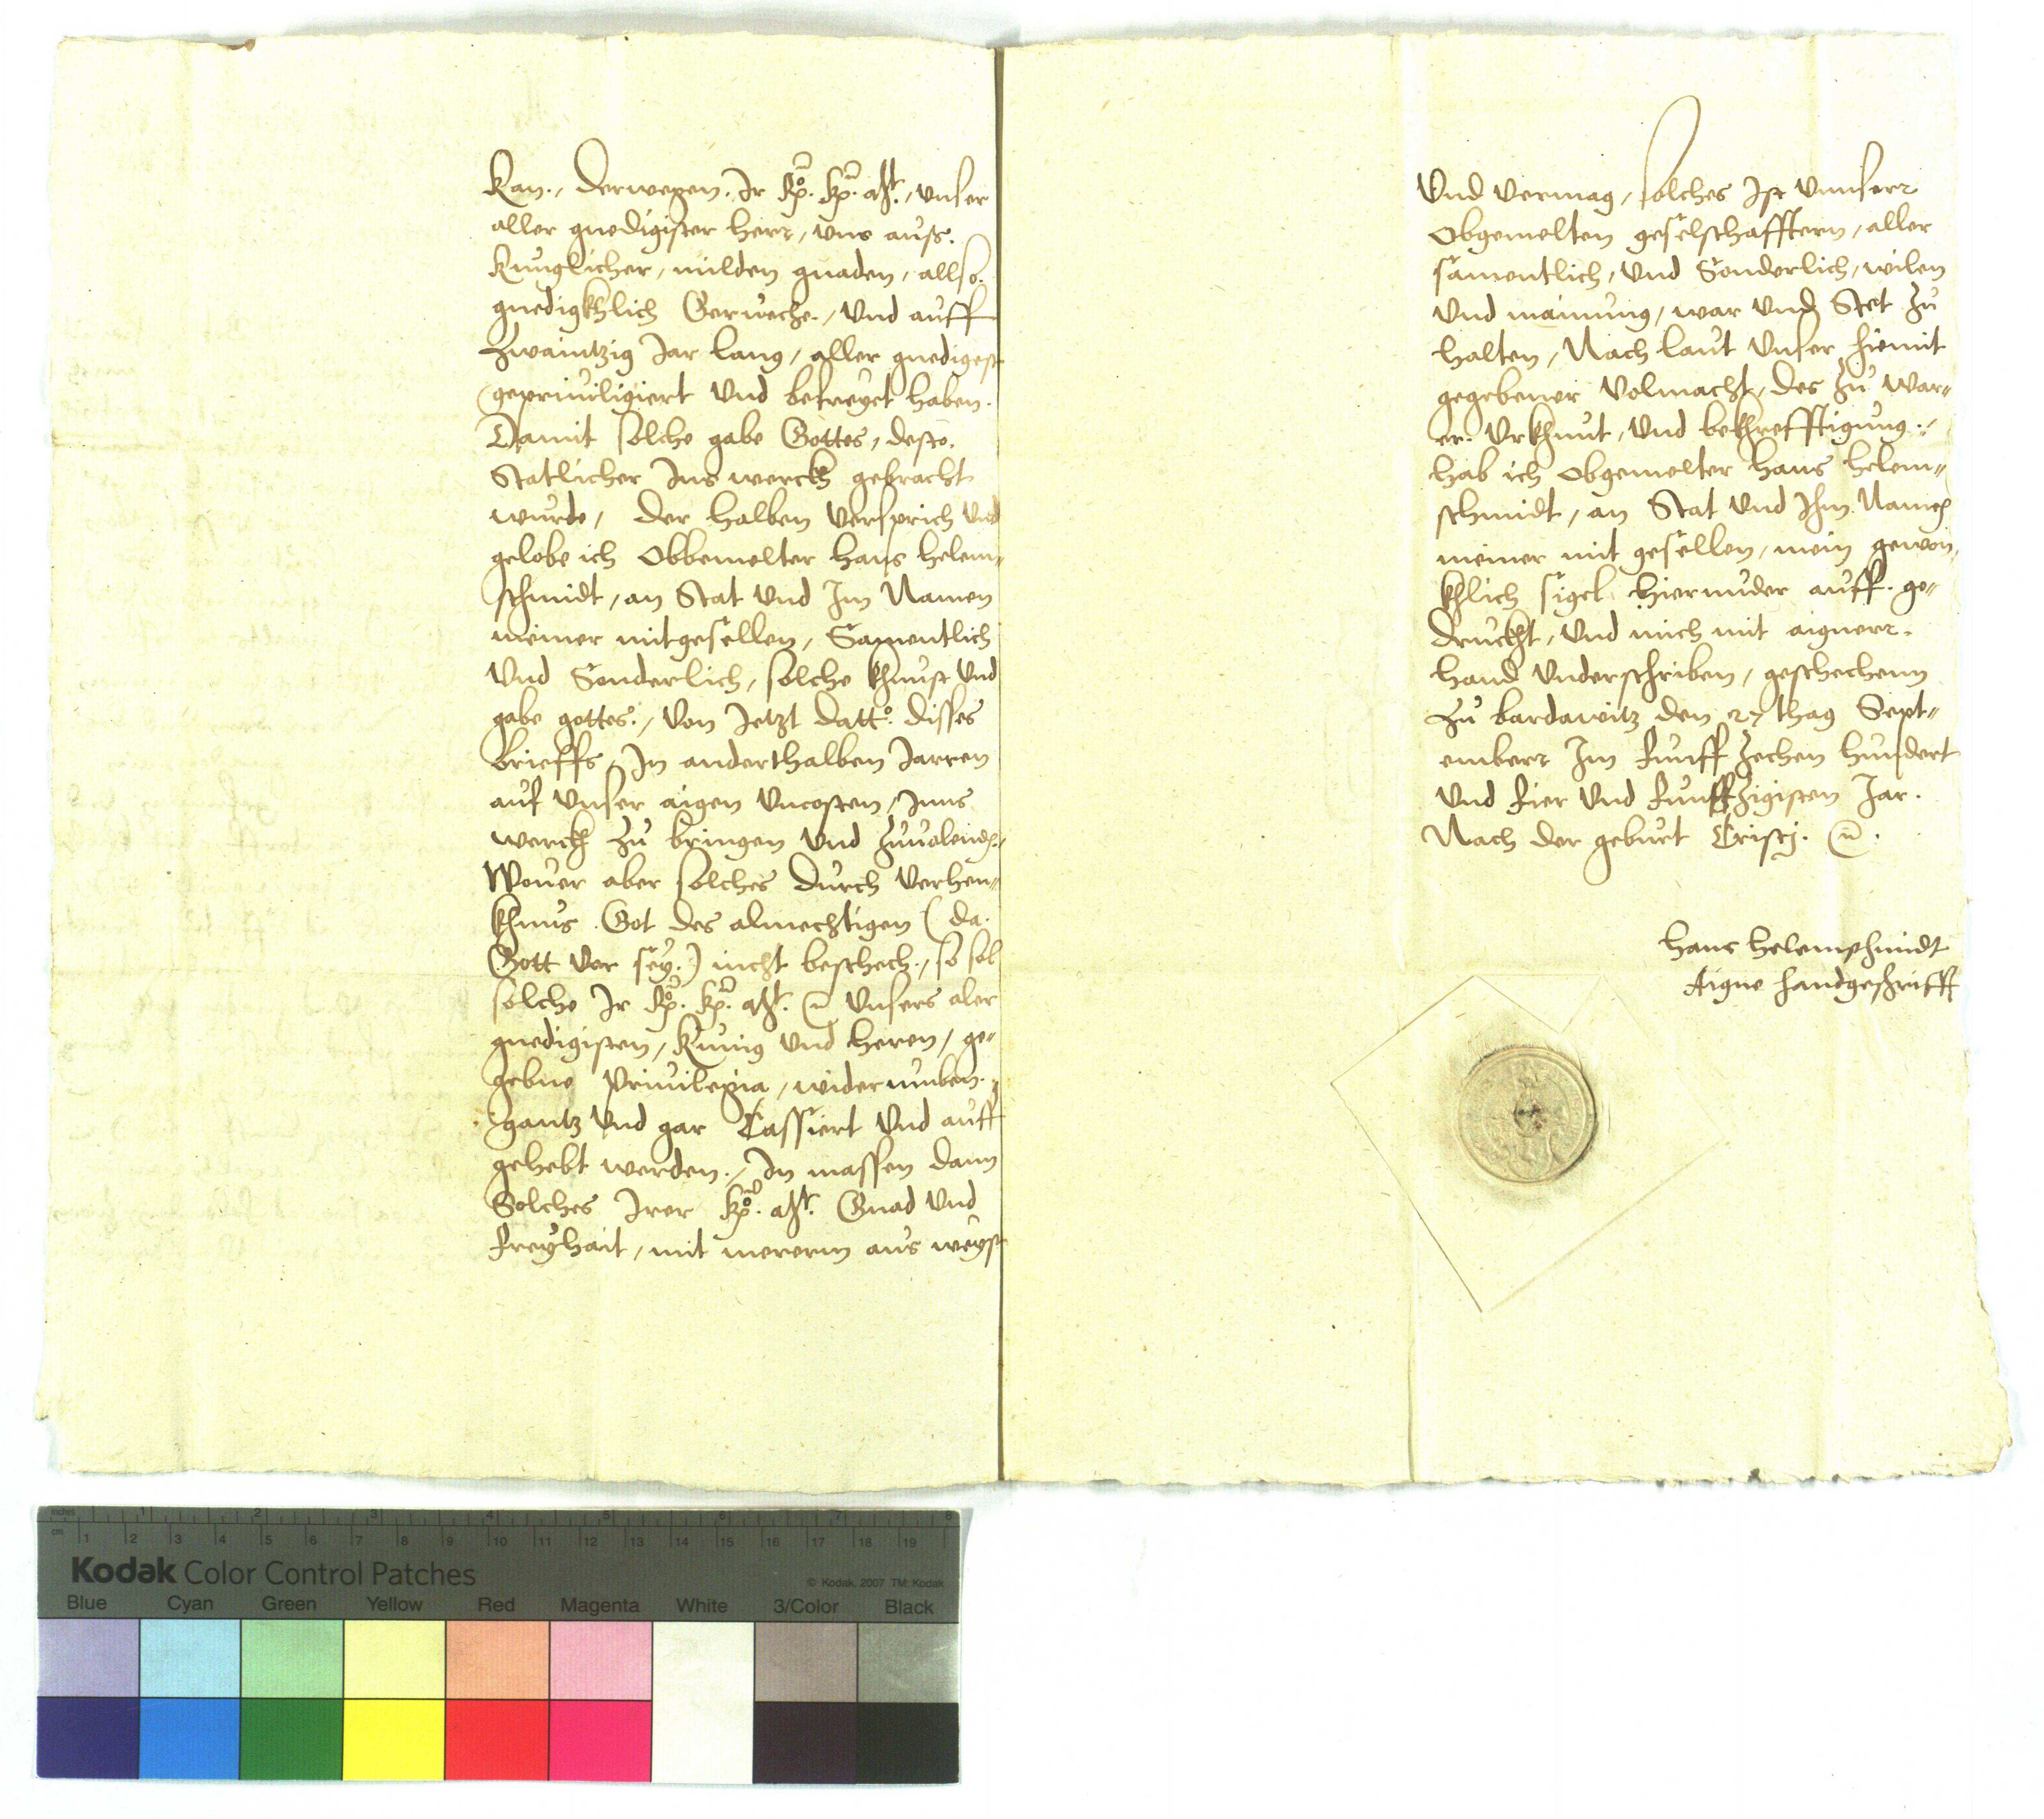 Kan., Derwegen. Ir Rö. Kü. Mt., unser
aller gnedigister herr, uns auß.
Kunglicher, milden gnaden, allso.
gnedigkhlich Gerueche., Und auff
Zwaintzig Jar lang, aller gnedigest
gepriuiligiert Und befreyet haben.
Damit solche gabe Gottes, desto.
Statlicher Ins werckh gebracht
wurde, Der halben Versprich Und
gelobe ich Obbemelter Hans Helem„
schmidt, an Stat Und Im Namen
meiner mitgesellen, Samentlich
Und Sonderlich, solche khunst Und
gabe gottes., Von Jetzt Datto. disses
Brieffs, In anderthalben Jarren
auf Unser aigen Uncosten, Inns
werckh Zu bringen Und Zuuolend.,
Wouer aber solches Durch Verhen„
khnus. Got des almechtigen (da.
Gott Vor sey.) nicht beschech., so sol
solche Ir Rö. Kü. Mt. Unsers aler
gnedigisten, Kunig Und Heren, ge„
gebne Priuilegia, widerumben.,
gantz Und gar Cassiert Und auff
gehebt werden., In massen dann
Solches Irer Kö. Mt. Gnad Und
freyhait, mit mererm aus weyst
Und Vermag, solches Ist Unnserr
Obgemelten geselschafftern, aller
samentlich, Und Sonderlich, wilen
Und mainung, war Und Stet Zu
halten, Nach laut Unser hiemit
gegebener Volmacht, des Zu War„
er. Urkhunt, Und bekhrefftigung.,
hab ich Obgemelter Hans Helem„
schmidt, an Stat Und Ihm Namen
meiner mit gesellen, mein gewon,
khlich sigel hierunder auff. ge„
druckht, Und mich mit aignerr.
Hand Underschriben, geschechenn
Zu bardawitz den 27 thag Sept„
emberr Im funff Zechen hundert
Und fier Und funffzigisten Jar.
Nach der geburt Cristj.
Hans Helemschmidt
Aigne handgeschrifft
inches 1 2 3 4 5 6 7 8
cm 1 2 3 4 5 6 7 8 9 10 11 12 13 14 15 16 17 18 19
Kodak Color Control Patches
© Kodak, 2007 TM: Kodak
Blue Cyan Green Yellow Red Magenta White 3/Color Black